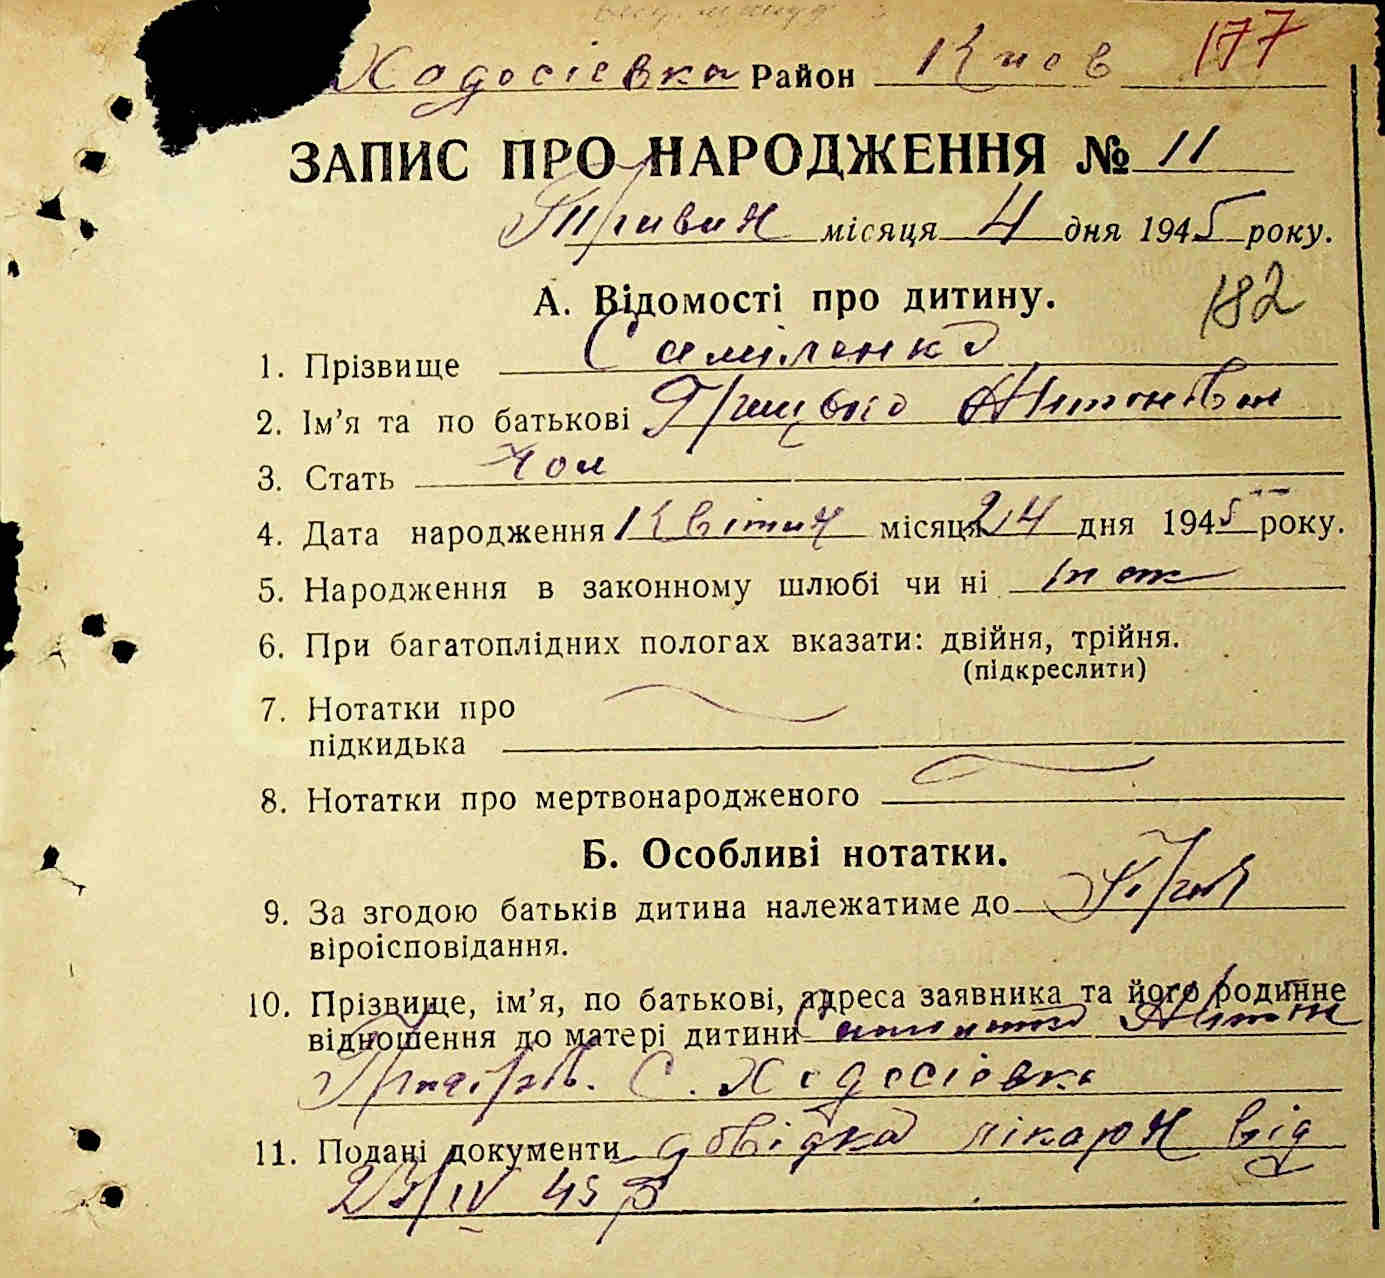 Ходосієвка Район Київ 177
ЗАПИС ПРО НАРОДЖЕННЯ № 11
Травня місяця 4 дня 1945 року.
А. Відомості про дитину. 182
1. Прізвище Самiленко
2. Ім'я та по батькові Грицько Антонович
3. Стать Чол
4. Дата народження Квітня місяця 24 дня 1945 року.
5. Народження в законному шлюбі чи ні так
6. При багатоплідних пологах вказати: двійня, трійня.
(підкреслити)
7. Нотатки про
підкидька
8. Нотатки про мертвонародженого
Б. Особливі нотатки.
9. За згодою батьків дитина належатиме до
віроісповідання.
10. Прізвище, ім'я, по батькові, адреса заявника та його родинне
відношення до матері дитини Антон
С. Ходосієвка
11. Подані документи довідка лікарн від
/IV 45 р